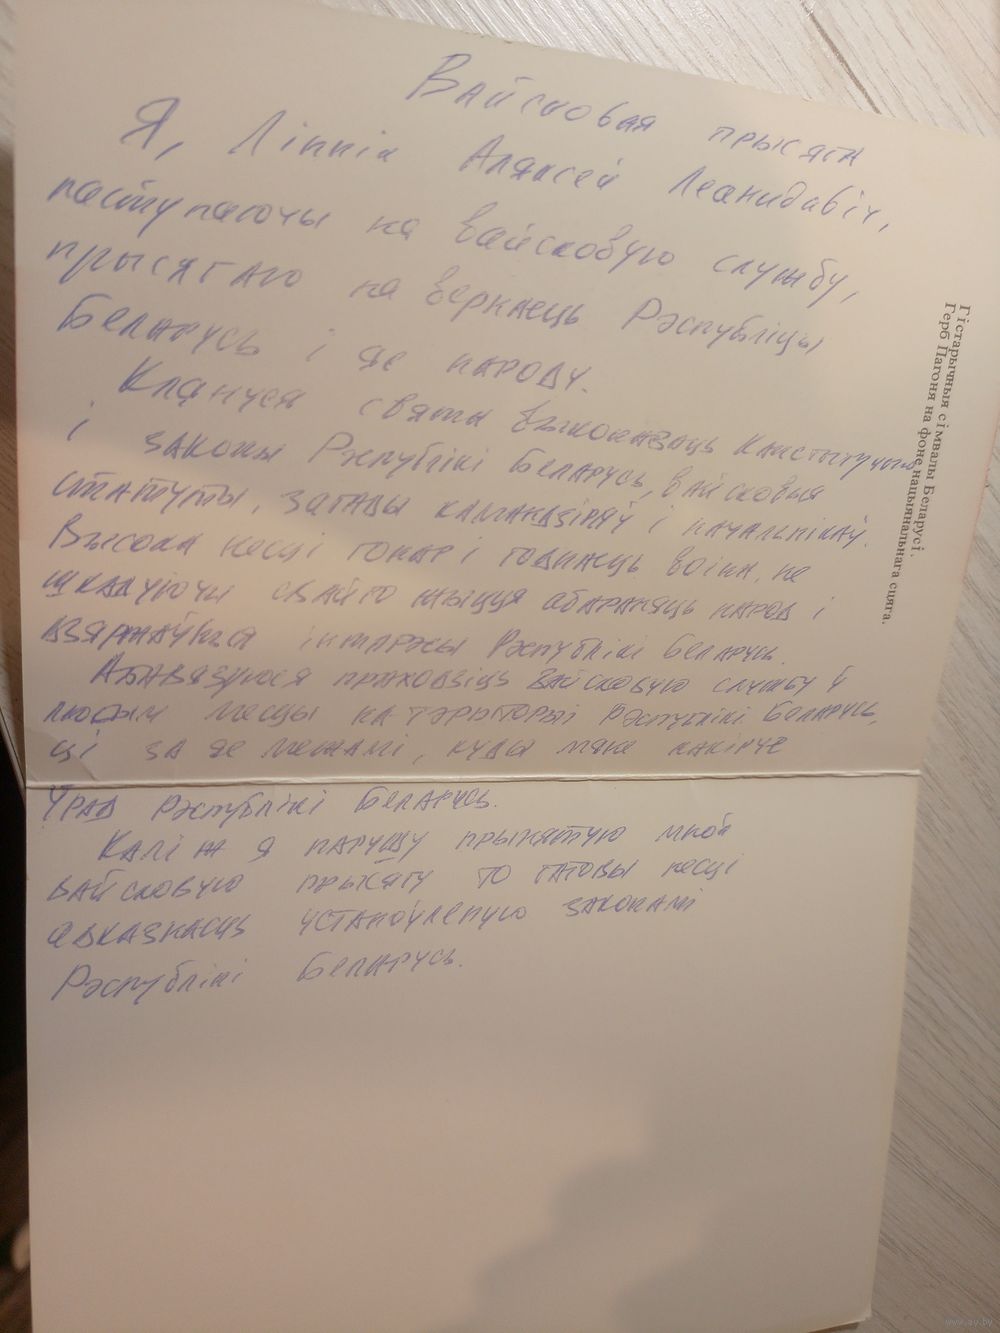 Вайсковая прысяга
Я, Ліпнік Аляксей Леанидавіч,
паступаючы на вайсковую службу,
прысягаю на вернасць Рэспубліцы
Беларусь і яе народу.
Клянуся свята выконваць Канстытуцыю
і законы Рэспублікі Беларусь, вайсковыя
статуты, загады камандзіраў і начальнікаў.
Высока несці гонар і годнасць воіна, не
шкадуючи свайго жыцця абараняць народ і
дзяржаўныя інтарэсы Рэспублікі Беларусь.
Абавязуюся праходзіць вайсковую службу ў
любым месцы на тэрыторыі Рэспублікі Беларусь,
ці за яе межамі, куды мяне накіруе
Урад Рэспублікі Беларусь.
Калі ж я парушу прынятую мной
вайсковую прысягу то гатовы несці
адказнасць устаноўленую законамі
Рэспублікі Беларусь.
Гістарычныя сімвалы Беларусі.
Герб Пагоня на фоне нацыянальнага сцяга.
www.ay.by